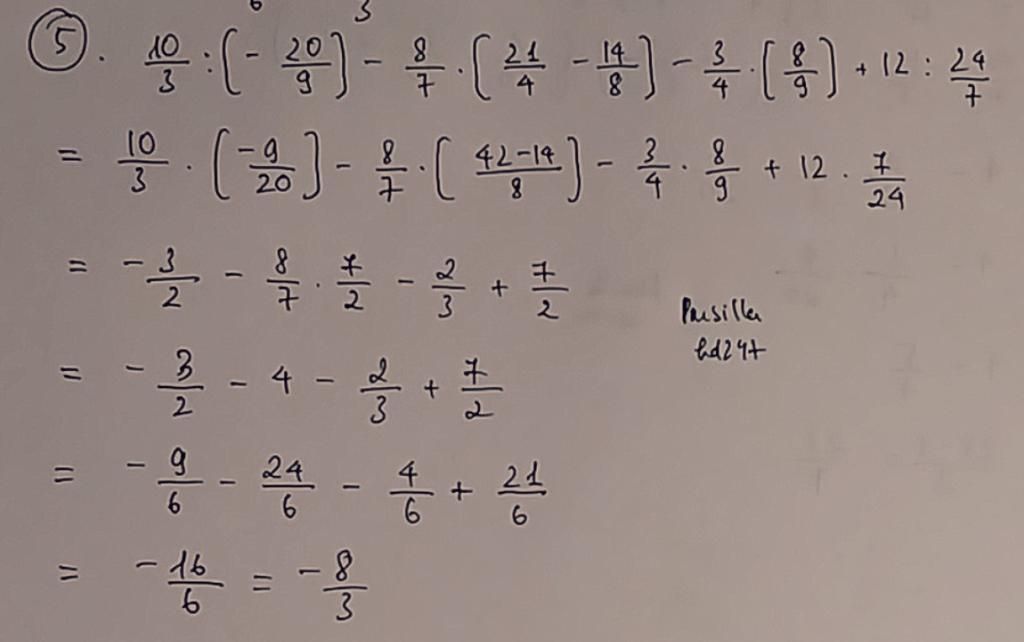 6 3
5. 10/3 : (- 20/9) - 8/7 · (21/4 - 14/8) - 3/4 · (8/9) + 12 : 24/7
= 10/3 · (-9/20) - 8/7 · (42-14/8) - 3/4 · 8/9 + 12 · 7/24
= - 3/2 - 8/7 · 7/2 - 2/3 + 7/2
= - 3/2 - 4 - 2/3 + 7/2
= - 9/6 - 24/6 - 4/6 + 21/6
= - 16/6 = - 8/3